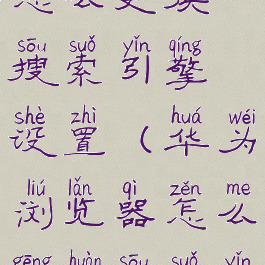 sōu suǒ yǐn qíng
搜索引擎
shè zhì huá wéi
设置(华为
liú lǎn qì zěn me
浏览器怎么
gēng huàn sōu suǒ yǐn